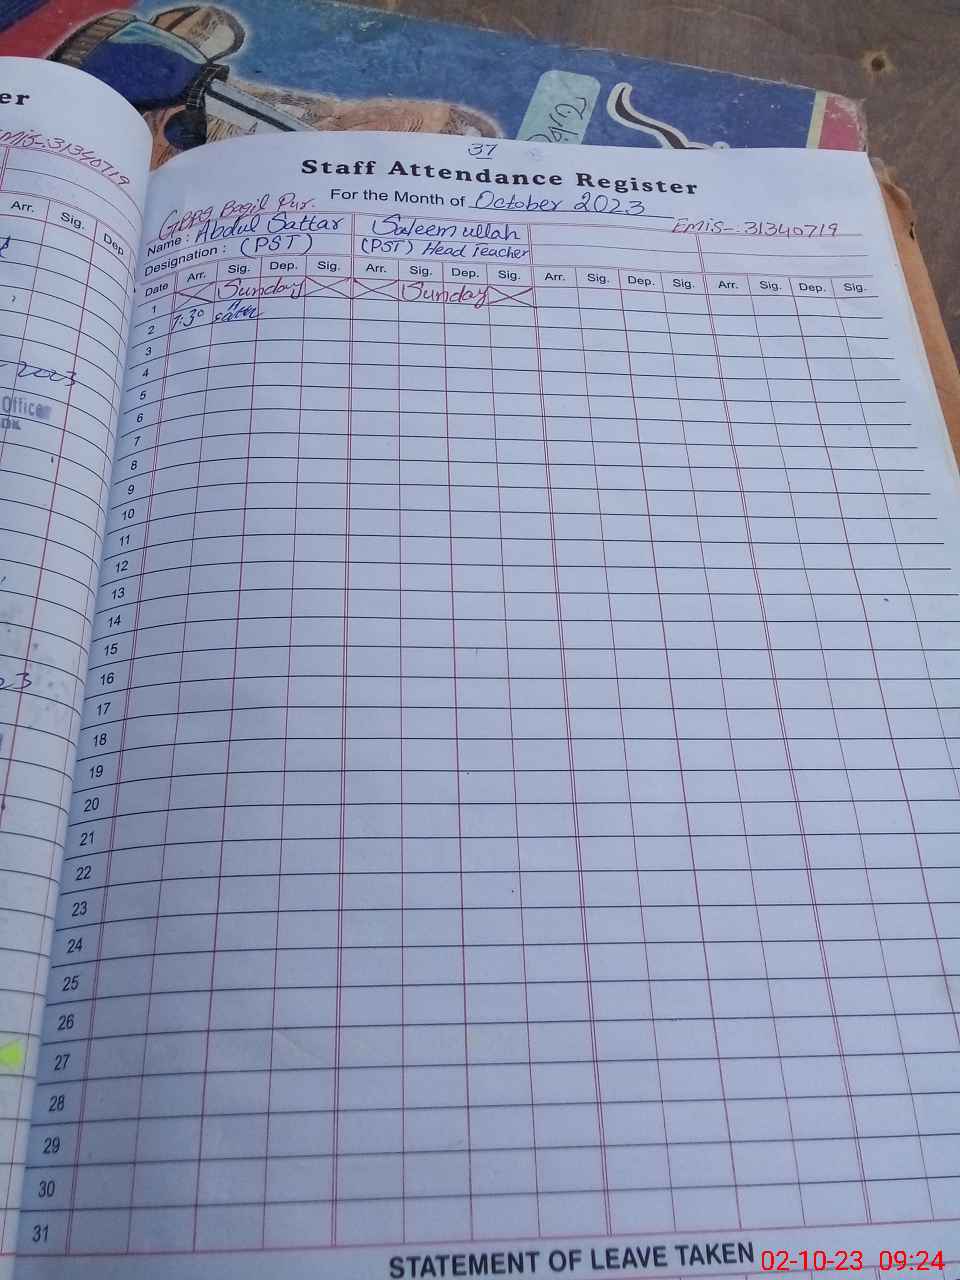 er
Emis-.31340719
Arr. Sig. Dep
2003
Officer
37
Staff Attendance Register
For the Month of October 2023
Emis-.31340719
Name : Abdul Sattar Saleem ullah
Designation : (PST) (PST) Head Teacher
Date Arr. Sig. Dep. Sig. Arr. Sig. Dep. Sig. Arr. Sig. Dep. Sig. Arr. Sig. Dep. Sig.
1 Sunday Sunday
2 7:30
3
4
5
6
7
8
9
10
11
12
13
14
15
16
17
18
19
20
21
22
23
24
25
26
27
28
29
30
31
STATEMENT OF LEAVE TAKEN
02-10-23 09:24